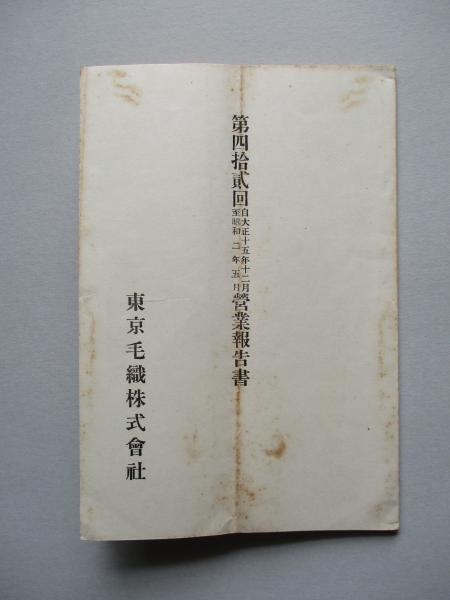 第四拾貳回自大正十五年十二月至昭和二年五月營業報告書
東京毛織株式會社